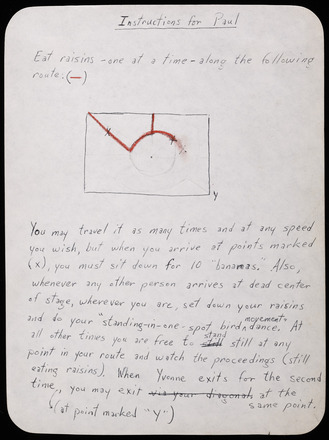 Instructions for Paul
Eat raisins - one at a time - along the following
route: (—)
x
x
Y
You may travel it as many times and at any speed
you wish, but when you arrive at points marked
(x), you must sit down for 10 "bananas." Also,
whenever any other person arrives at dead center
of stage, wherever you are, set down your raisins
and do your "standing-in-one-spot bird movement dance. At
all other times you are free to stand still at any
point in your route and watch the proceedings (still
eating raisins). When Yvonne exits for the second
time, you may exit via your diagonal at the same point.
(at point marked "Y")